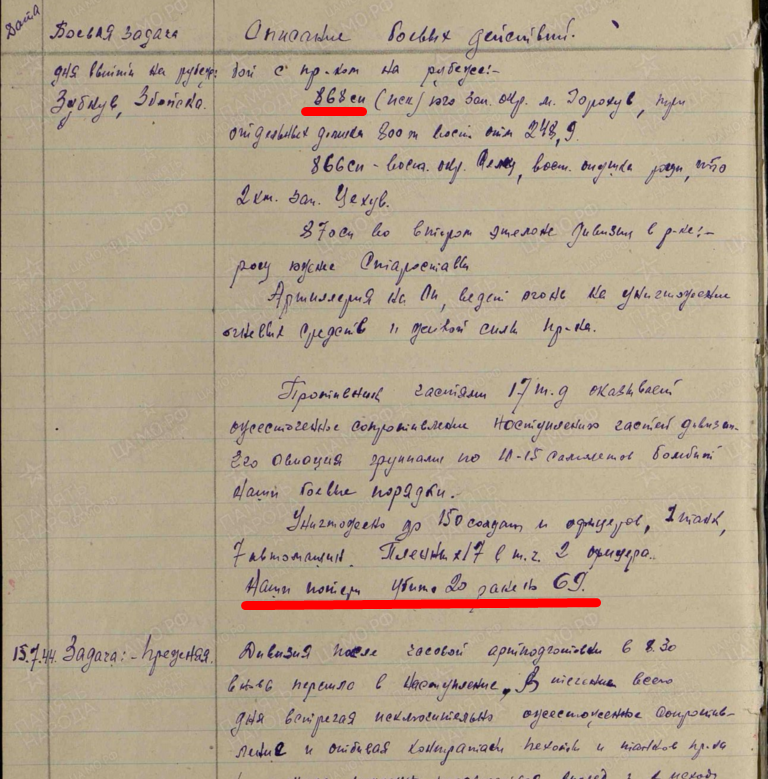 Дата
Боевая задача
Описание боевых действий.
дня выйти на рубеж:
Зубкув, Збойска.
бой с пр-ком на рубеже:-
868сп (иск) юго зап. окр. м. Горохув, при
отдельных домика 800 м вост. отм 248,9.
866сп - восн. окр. вост. опушка рощи, что
2 км. зап. Цехув.
870сп во втором эшелоне дивизии в р-не:-
рощи южнее Староставы
Артиллерия на ОП, ведет огонь на уничтожение
огневых средств и живой силы пр-ка.
Противник частями 17 т.д оказывает
ожесточенное сопротивление наступлению частей дивизии.
Его авиация группами по 10-15 самолетов бомбит
наши боевые порядки.
Уничтожено до 150 солдат и офицеров, 1 танк,
7 автомашин. Пленных 17 в т.ч. 2 офицера.
Наши потери убито 20 ранено 69.
15.7.44. Задача:- Прежняя.
Дивизия после часовой артподготовки в 8.30
вновь перешла в наступление. В течении всего
дня встречая исключительно ожесточенное сопротив-
ление и отбивая контратаки пехоты и танков пр-ка
ЦАМО.РФ
ПАМЯТЬ НАРОДА